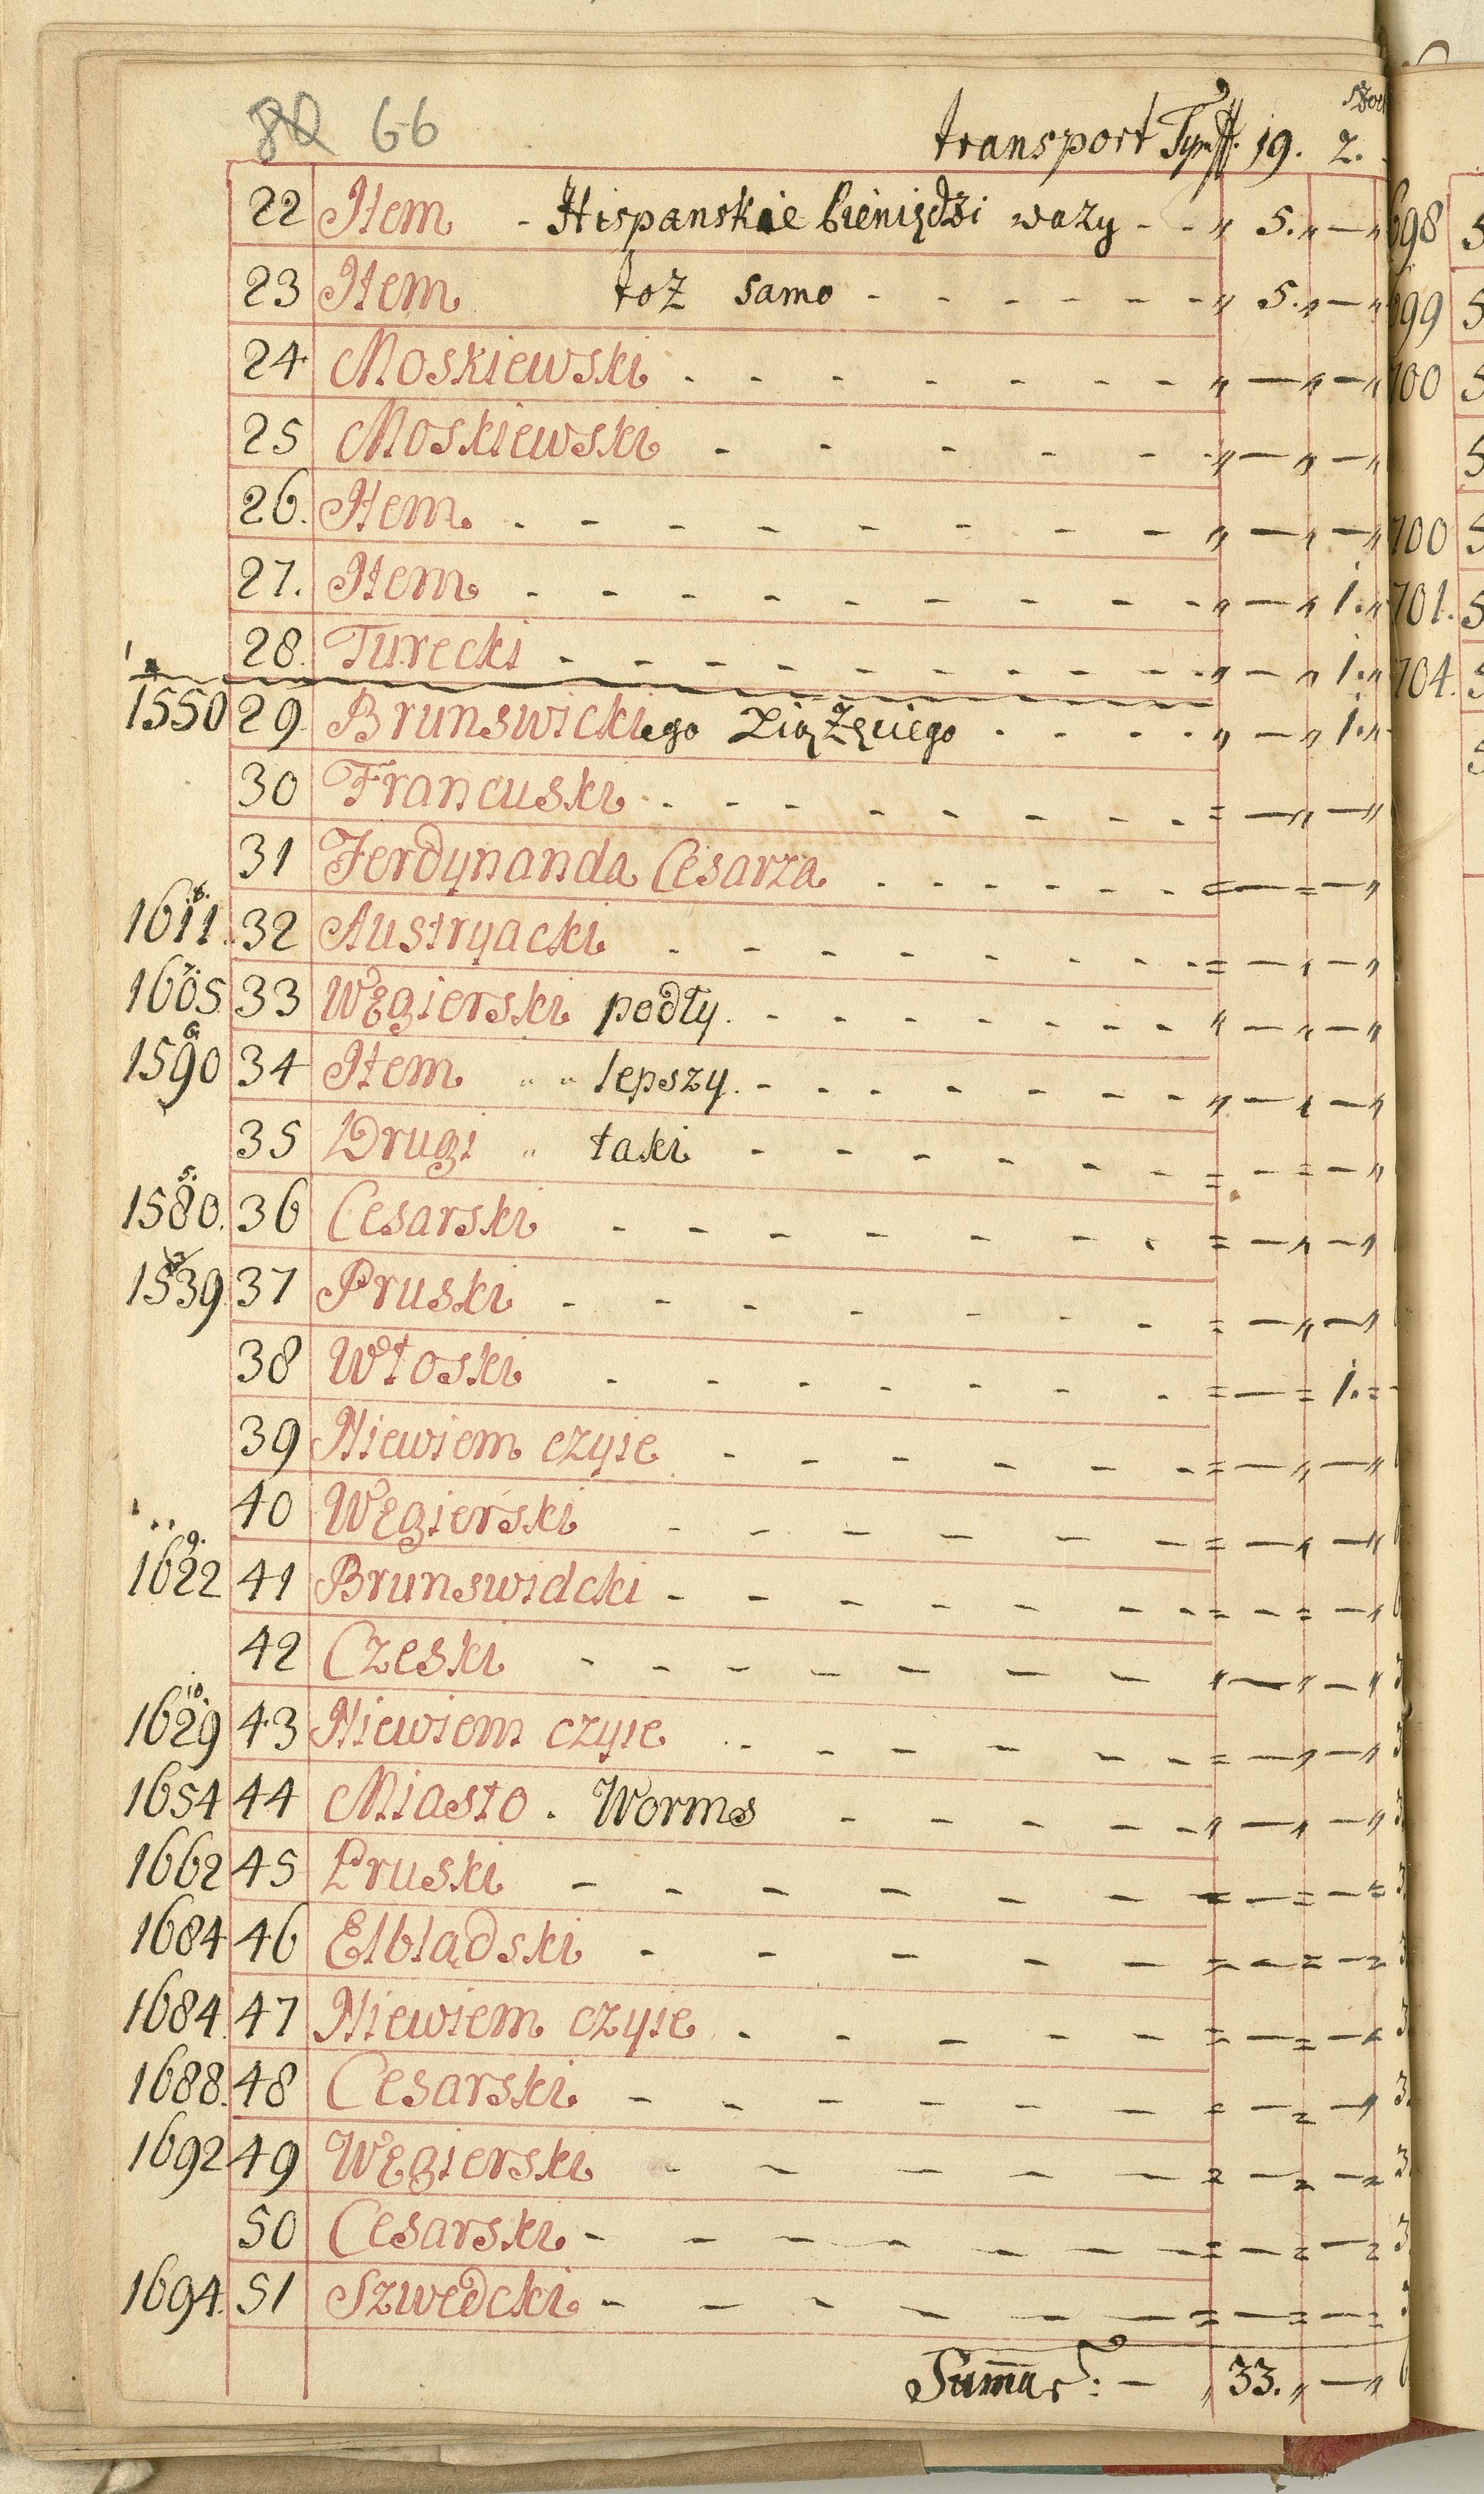 80 66
transport Tymff. 19. 2.
22 Item - Hispanskie bieniędzi wazy - - " 5. " — "
23 Item toż samo - - - - - - " 5. " — "
24 Moskiewski - - - - - - - " — " — "
25 Moskiewski - - - - - - " — " — "
26. Item. - - - - - - - - " — " — "
27. Item - - - - - - - - - " — " 1. "
28. Turecki - - - - - - - - - " — " 1. "
1550 29 Brunswickiego Xiązęciego - - - - " — " 1. "
30 Francuski - - - - - - - - = — " — "
31 Ferdynanda Cesarza - - - - - - = — = — "
1611. 32 Austryacki - - - - - - - = — " — "
1605. 33 Węgierski podły. - - - - - - - " — " — "
1590 34 Item " " lepszy. - - - - - - - " — " — "
35 Drugi " taki - - - - - - = — = — "
1580. 36 Cesarski - - - - - - - = — " — "
1539. 37 Pruski - - - - - - - = — " — "
38 Włoski - - - - - - - = — = 1. =
39 Niewiem czyie - - - - - - = — " — "
40 Węgierski - - - - - - = — " — "
1622 41 Brunswidcki - - - - - - - = — = — "
42 Czeski - - - - - - - " — " — "
1629 43 Niewiem czyie - - - - - - = — " — "
1654 44 Miasto. Worms - - - - - " — " — "
1662 45 Pruski - - - - - - = — = — =
1684 46 Elblądski - - - - - = — = — =
1684. 47 Niewiem czyie - - - - - = — = — "
1688. 48 Cesarski - - - - - - = — = — "
1692 49 Węgierski - - - - - = — = — =
50 Cesarski - - - - - - - = — = — =
1694. 51 Szwedcki - - - - - - = — = — =
Summa: — " 33. " — "